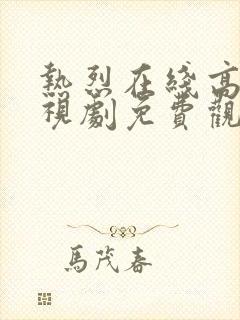 熱烈在綫高
視劇免費觀
馬茂春